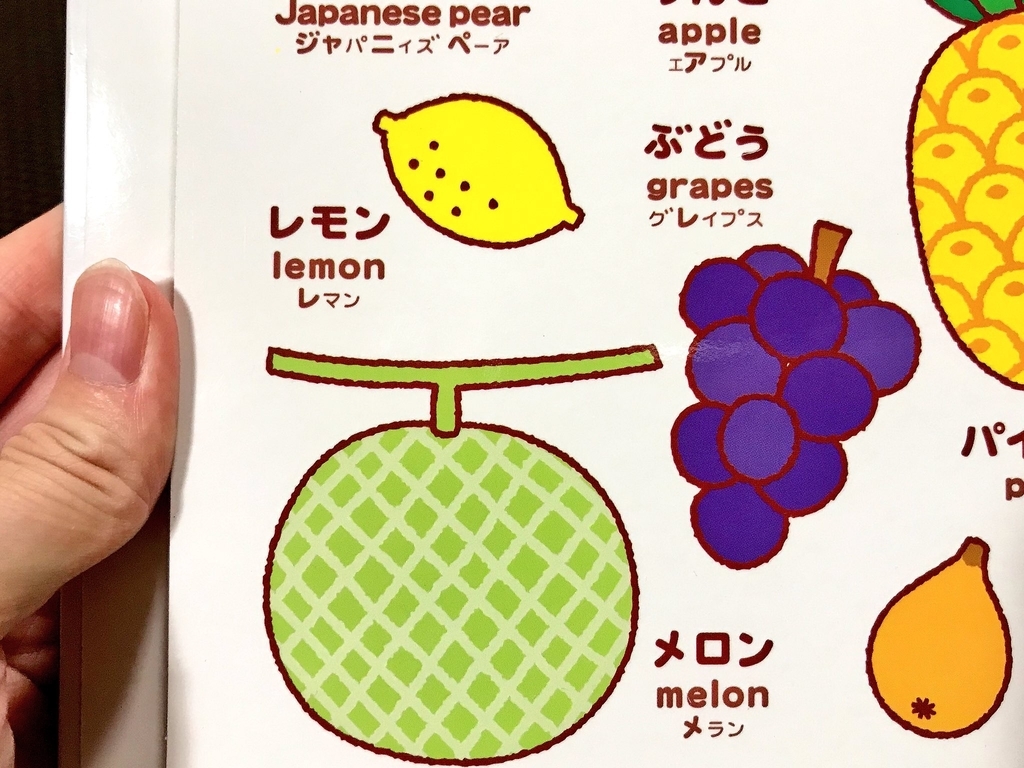 Japanese pear
ジャパニィズ ペーア
apple
エアプル
ぶどう
grapes
グレイプス
レモン
lemon
レマン
メロン
melon
メラン